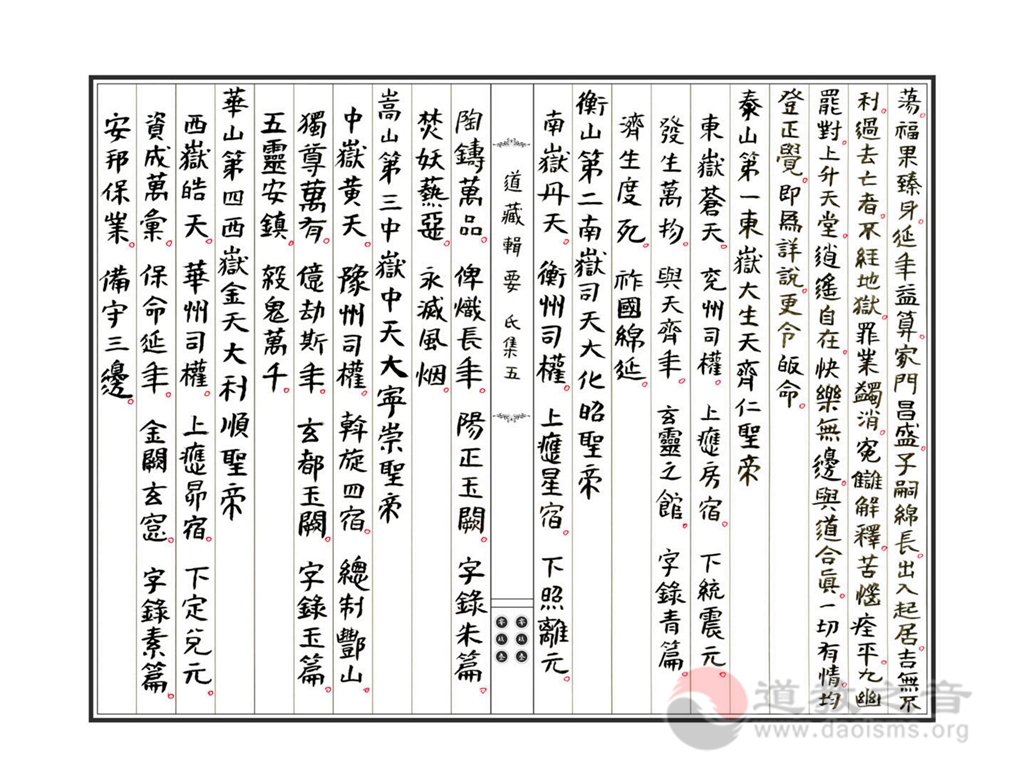 蕩。福果臻身。延年益算。家門昌盛。子嗣綿長。出入起居。吉無不
利。過去亡者。不經地獄。罪業蠲消。冤讎解釋。苦惱痊平。九幽
罷對。上升天堂。逍遙自在。快樂無邊。與道合真。一切有情。均
登正覺。即爲詳說。更令皈命。
泰山第一東嶽大生天齊仁聖帝
東嶽蒼天。 兖州司權。 上應房宿。 下統震元。
發生萬物。 與天齊年。 玄靈之館。 字錄青篇。
濟生度死。 祚國綿延。
衡山第二南嶽司天大化昭聖帝
南嶽丹天。 衡州司權。 上應星宿。 下照離元。
道藏輯要 氐集五
陶鑄萬品。 俾熾長年。 陽正玉闕。 字錄朱篇。
焚妖爇惡。 永滅風烟。
嵩山第三中嶽中天大寧崇聖帝
中嶽黄天。 豫州司權。 斡旋四宿。 總制酆山。
獨尊萬有。 億劫斯年。 玄都玉闕。 字錄玉篇。
五靈安鎮。 殺鬼萬千。
華山第四西嶽金天大利順聖帝
西嶽皓天。 華州司權。 上應昴宿。 下定兌元。
資成萬彙。 保命延年。 金闕玄窓。 字錄素篇。
安邦保業。 備守三邊。
道教之音
www.daoisms.org